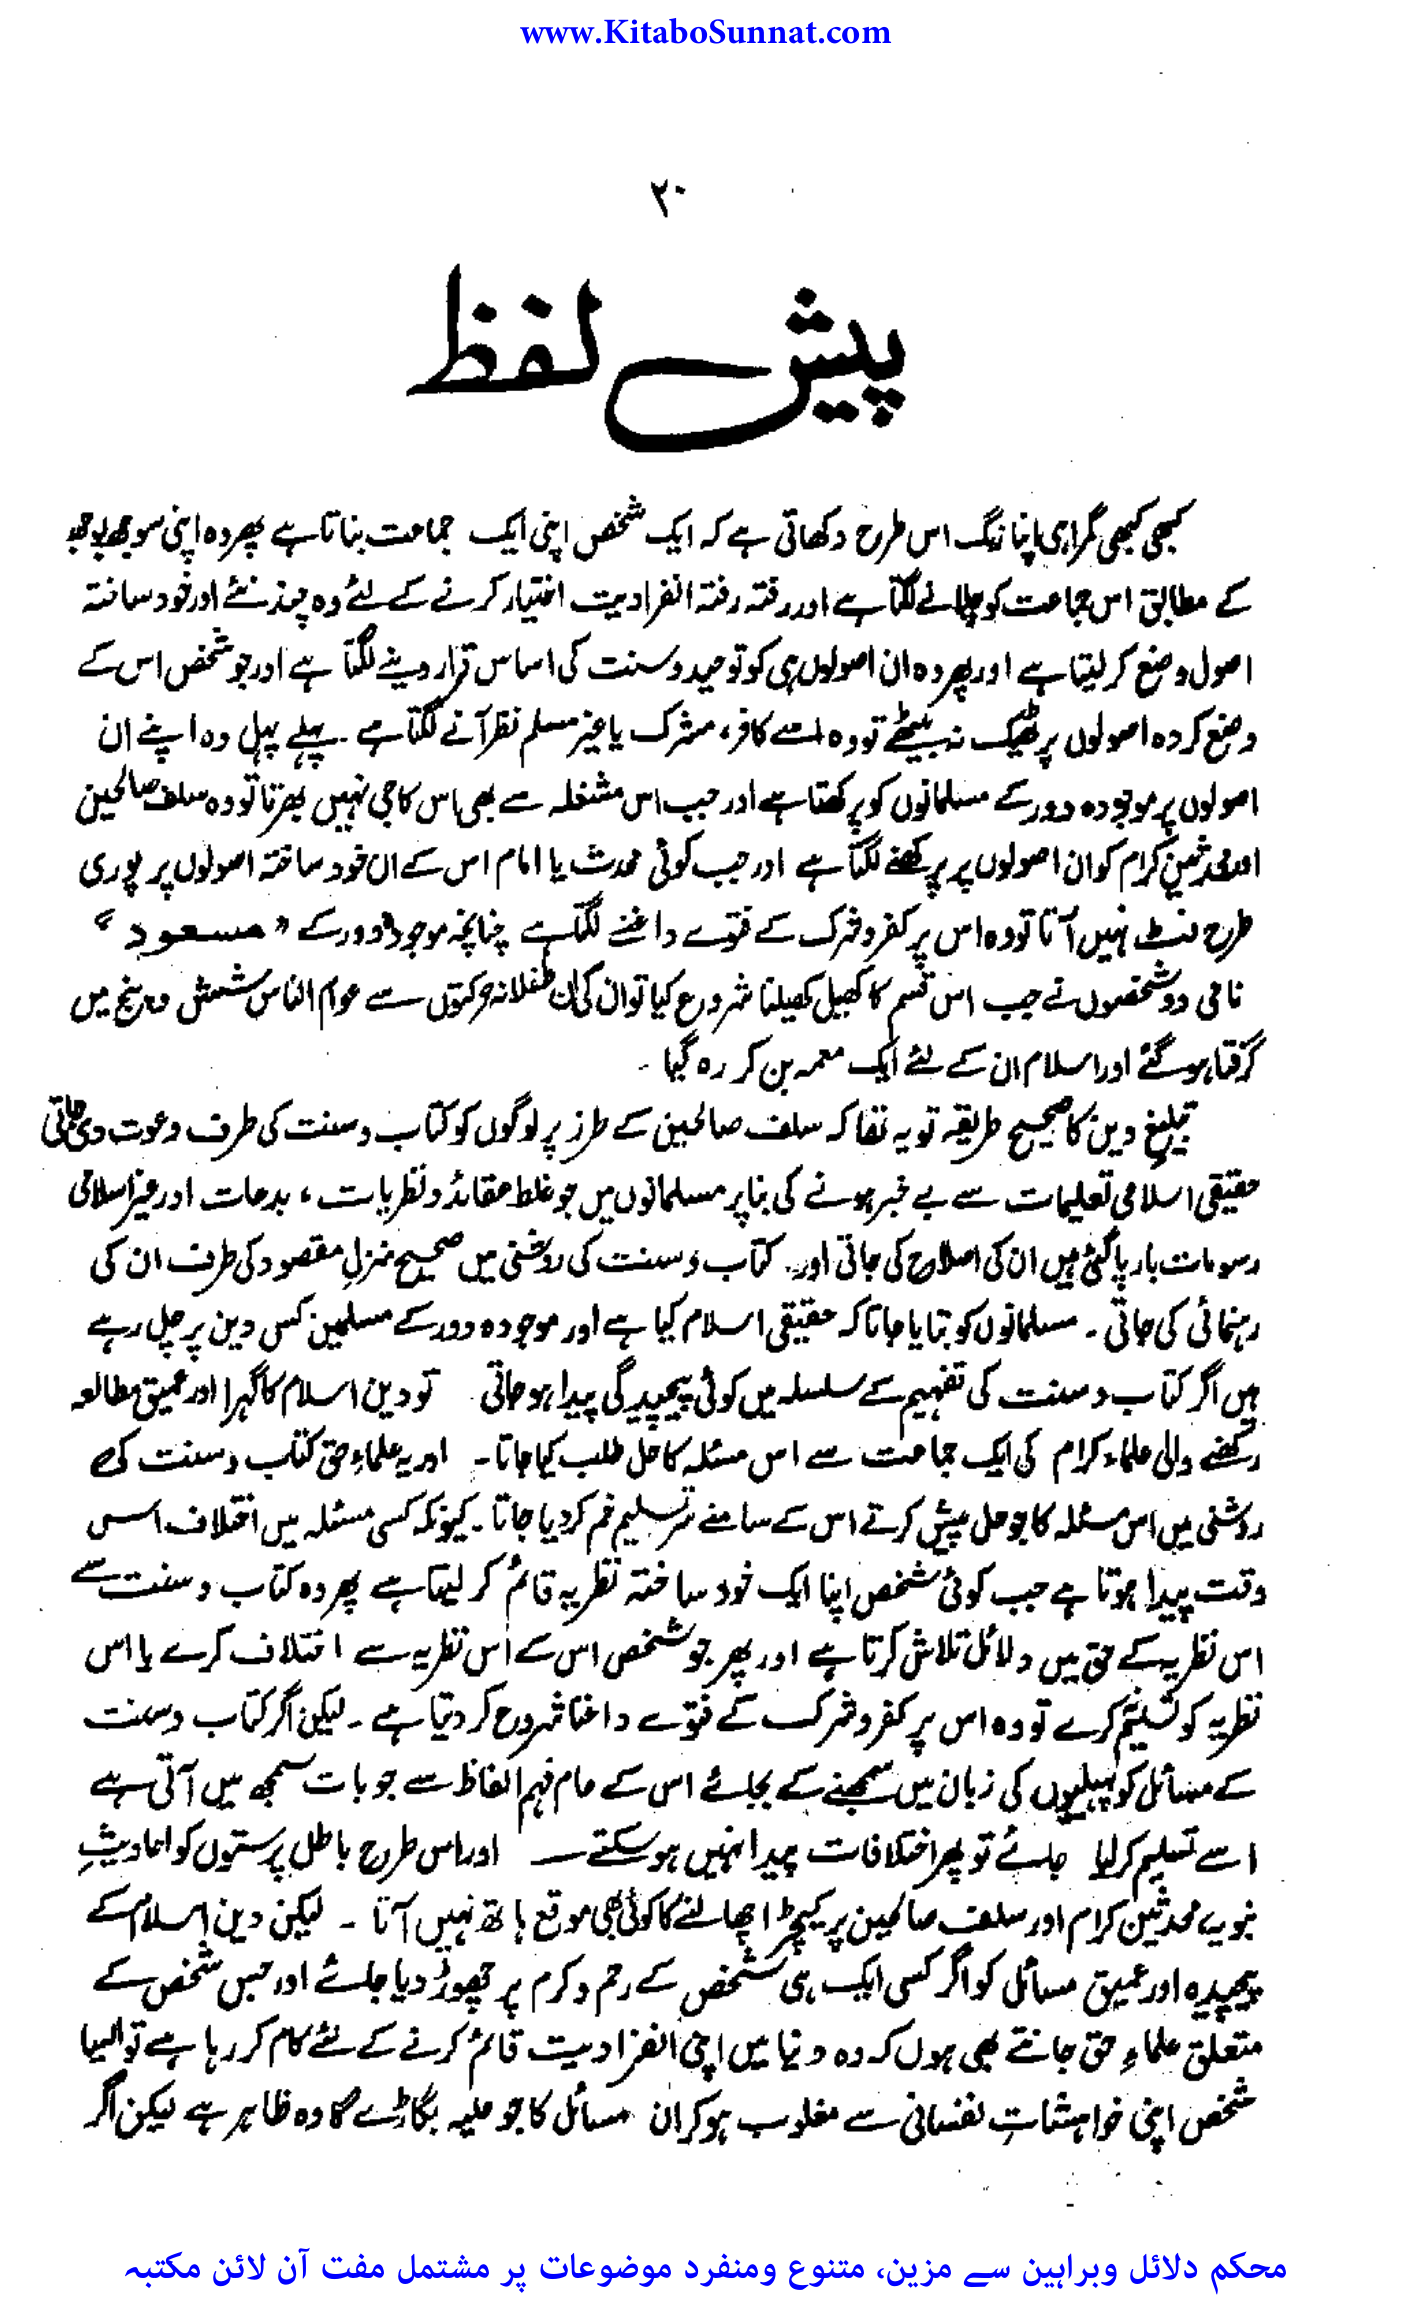 www.KitaboSunnat.com
۲۰
پیش لفظ
کبھی کبھی گمراہی اپنا رنگ اس طرح دکھاتی ہے کہ ایک شخص اپنی ایک جماعت بناتا ہے پھر وہ اپنی سوجھ بوجھ
کے مطابق اس جماعت کو چلانے لگتا ہے اور رفتہ رفتہ انفرادیت اختیار کرنے کے لئے وہ چند نئے اور خود ساختہ
اصول وضع کر لیتا ہے اور پھر وہ ان اصولوں ہی کو توحید و سنت کی اساس قرار دینے لگتا ہے اور جو شخص اس کے
وضع کردہ اصولوں پر ٹھیک نہ بیٹھے تو وہ اسے کافر، مشرک یا غیر مسلم نظر آنے لگتا ہے ۔ پہلے پہل وہ اپنے ان
اصولوں پر موجودہ دور کے مسلمانوں کو پرکھتا ہے اور جب اس مشغلہ سے بھی اس کا جی نہیں بھرتا تو وہ سلف صالحین
اور محدثین کرام کو ان اصولوں پر پرکھنے لگتا ہے اور جب کوئی محدث یا امام اس کے ان خود ساختہ اصولوں پر پوری
طرح فٹ نہیں آتا تو وہ اس پر کفر و شرک کے فتوے داغنے لگتا ہے چنانچہ موجودہ دور کے " مسعود "
نامی دو شخصوں نے جب اس قسم کا کھیل کھیلنا شروع کیا تو ان کی ان طفلانہ حرکتوں سے عوام الناس شش و پنج میں
گرفتار ہو گئے اور اسلام ان کے لئے ایک معمہ بن کر رہ گیا ۔
تبلیغ دین کا صحیح طریقہ تو یہ تھا کہ سلف صالحین کے طرز پر لوگوں کو کتاب و سنت کی طرف دعوت دی جاتی
حقیقی اسلامی تعلیمات سے بے خبر ہونے کی بنا پر مسلمانوں میں جو غلط عقائد و نظریات ، بدعات اور غیر اسلامی
رسومات بار پا گئی ہیں ان کی اصلاح کی جاتی اور کتاب و سنت کی روشنی میں صحیح منزلِ مقصود کی طرف ان کی
رہنمائی کی جاتی ۔ مسلمانوں کو بتایا جاتا کہ حقیقی اسلام کیا ہے اور موجودہ دور کے مسلمین کس دین پر چل رہے
ہیں اگر کتاب و سنت کی تفہیم کے سلسلہ میں کوئی پیچیدگی پیدا ہو جاتی تو دین اسلام کا گہرا اور عمیق مطالعہ
رکھنے والی علماء کرام کی ایک جماعت سے اس مسئلہ کا حل طلب کیا جاتا ۔ اور یہ علماءِ حق کتاب و سنت کی
روشنی میں اس مسئلہ کا جو حل پیش کرتے اس کے سامنے سر تسلیم خم کر دیا جاتا ۔ کیونکہ کسی مسئلہ میں اختلاف اس
وقت پیدا ہوتا ہے جب کوئی شخص اپنا ایک خود ساختہ نظریہ قائم کر لیتا ہے پھر وہ کتاب و سنت سے
اس نظریہ کے حق میں دلائل تلاش کرتا ہے اور پھر جو شخص اس کے اس نظریہ سے اختلاف کرے یا اس
نظریہ کو تسلیم کرے تو وہ اس پر کفر و شرک کے فتوے داغنا شروع کر دیتا ہے ۔ لیکن اگر کتاب و سنت
کے مسائل کو پہیلیوں کی زبان میں سمجھنے کے بجائے اس کے عام فہم الفاظ سے جو بات سمجھ میں آتی ہے
اسے تسلیم کر لیا جائے تو پھر اختلافات پیدا نہیں ہو سکتے — اور اس طرح باطل پرستوں کو احادیثِ
نبویہ، محدثین کرام اور سلف صالحین پر کیچڑ اچھالنے کا کوئی بھی موقع ہاتھ نہیں آتا ۔ لیکن دین اسلام کے
پیچیدہ اور عمیق مسائل کو اگر کسی ایک ہی شخص کے رحم و کرم پر چھوڑ دیا جائے اور جس شخص کے
متعلق علماءِ حق جانتے بھی ہوں کہ وہ دنیا میں اپنی انفرادیت قائم کرنے کے لئے کام کر رہا ہے تو ایسا
شخص اپنی خواہشاتِ نفسانی سے مغلوب ہو کر ان مسائل کا جو حلیہ بگاڑے گا وہ ظاہر ہے لیکن اگر
محکم دلائل وبراہین سے مزین، متنوع ومنفرد موضوعات پر مشتمل مفت آن لائن مکتبہ